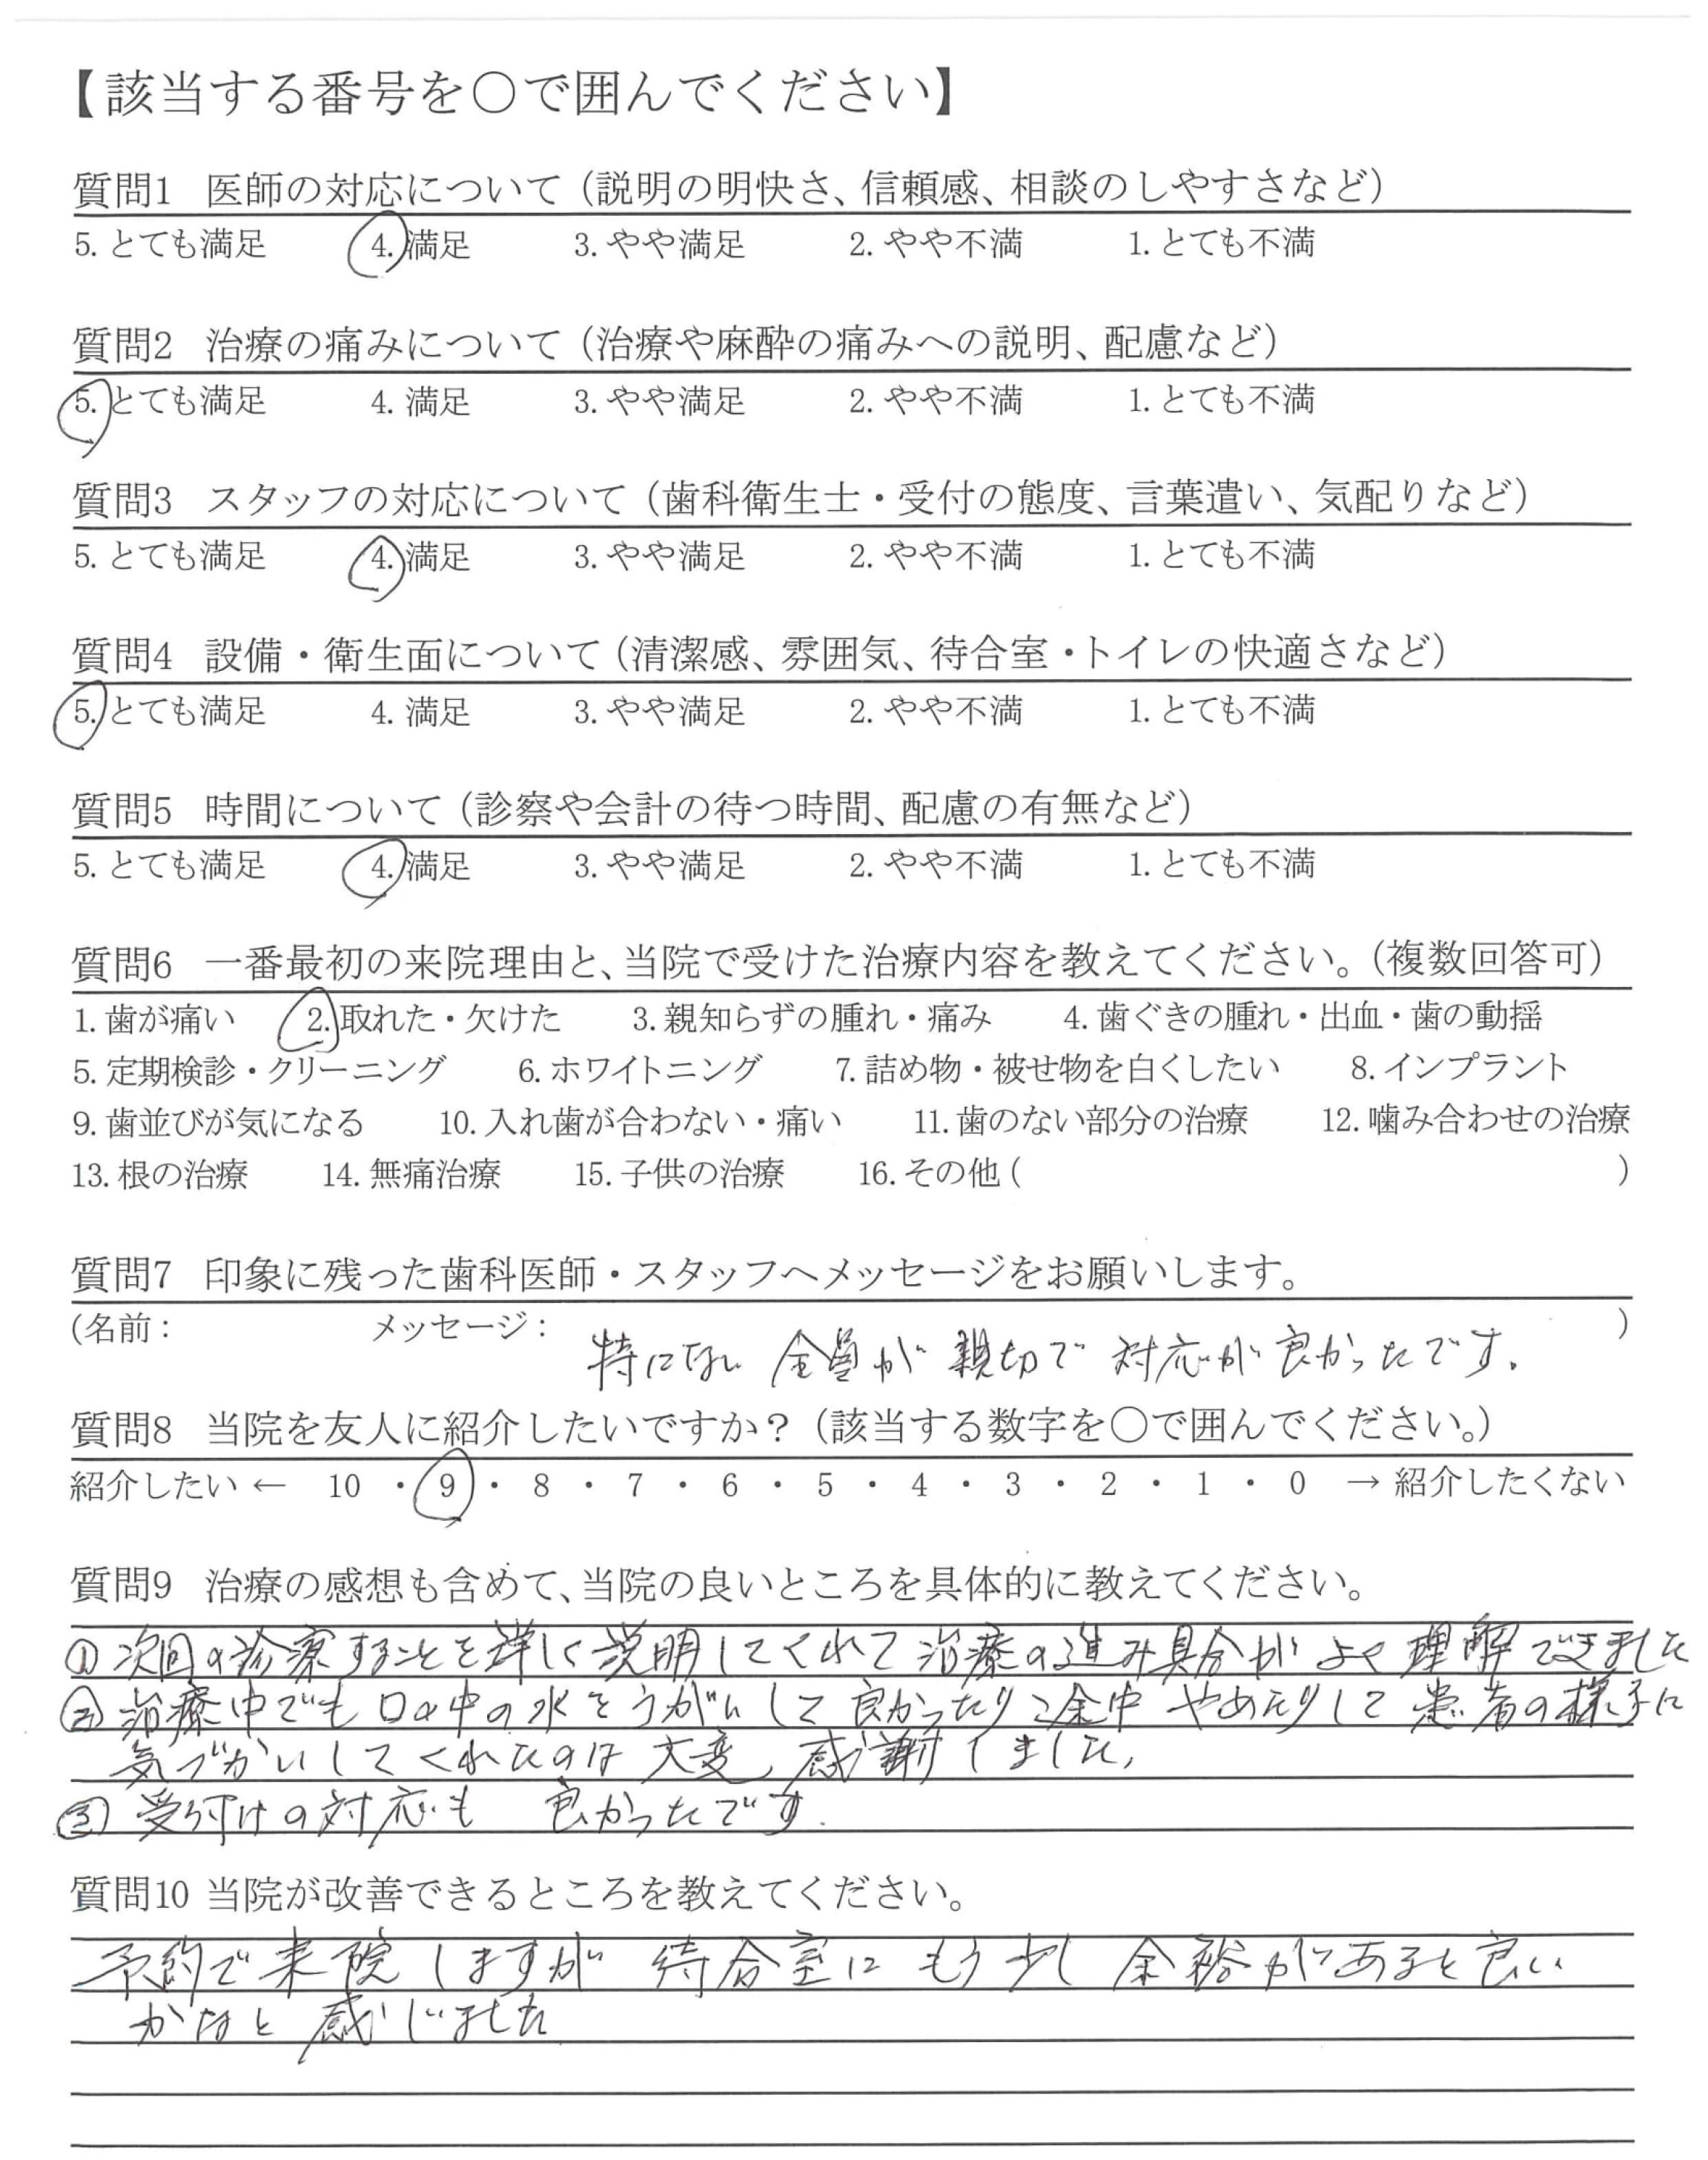 【該当する番号を○で囲んでください】
質問1 医師の対応について（説明の明快さ、信頼感、相談のしやすさなど）
5. とても満足 4. 満足 3. やや満足 2. やや不満 1. とても不満
質問2 治療の痛みについて（治療や麻酔の痛みへの説明、配慮など）
5. とても満足 4. 満足 3. やや満足 2. やや不満 1. とても不満
質問3 スタッフの対応について（歯科衛生士・受付の態度、言葉遣い、気配りなど）
5. とても満足 4. 満足 3. やや満足 2. やや不満 1. とても不満
質問4 設備・衛生面について（清潔感、雰囲気、待合室・トイレの快適さなど）
5. とても満足 4. 満足 3. やや満足 2. やや不満 1. とても不満
質問5 時間について（診察や会計の待つ時間、配慮の有無など）
5. とても満足 4. 満足 3. やや満足 2. やや不満 1. とても不満
質問6 一番最初の来院理由と、当院で受けた治療内容を教えてください。（複数回答可）
1. 歯が痛い 2. 取れた・欠けた 3. 親知らずの腫れ・痛み 4. 歯ぐきの腫れ・出血・歯の動揺
5. 定期検診・クリーニング 6. ホワイトニング 7. 詰め物・被せ物を白くしたい 8. インプラント
9. 歯並びが気になる 10. 入れ歯が合わない・痛い 11. 歯のない部分の治療 12. 噛み合わせの治療
13. 根の治療 14. 無痛治療 15. 子供の治療 16. その他（ ）
質問7 印象に残った歯科医師・スタッフへメッセージをお願いします。
（名前： メッセージ： ）
特にない 全員が 親切で 対応が 良かったです。
質問8 当院を友人に紹介したいですか？（該当する数字を○で囲んでください。）
紹介したい ← 10 ・ 9 ・ 8 ・ 7 ・ 6 ・ 5 ・ 4 ・ 3 ・ 2 ・ 1 ・ 0 → 紹介したくない
質問9 治療の感想も含めて、当院の良いところを具体的に教えてください。
① 次回の診療することを詳しく説明してくれて 治療の進み具合が よく理解できました
② 治療中でも 口の中の水をうがいして 良かったり 途中 やめたりして 患者の様子に
気づかいしてくれたのは 大変 感謝しました、
③ 受付けの対応も 良かったです.
質問10 当院が改善できるところを教えてください。
予約で来院しますが 待合室に もう少し 余裕があると良い
かなと 感じました